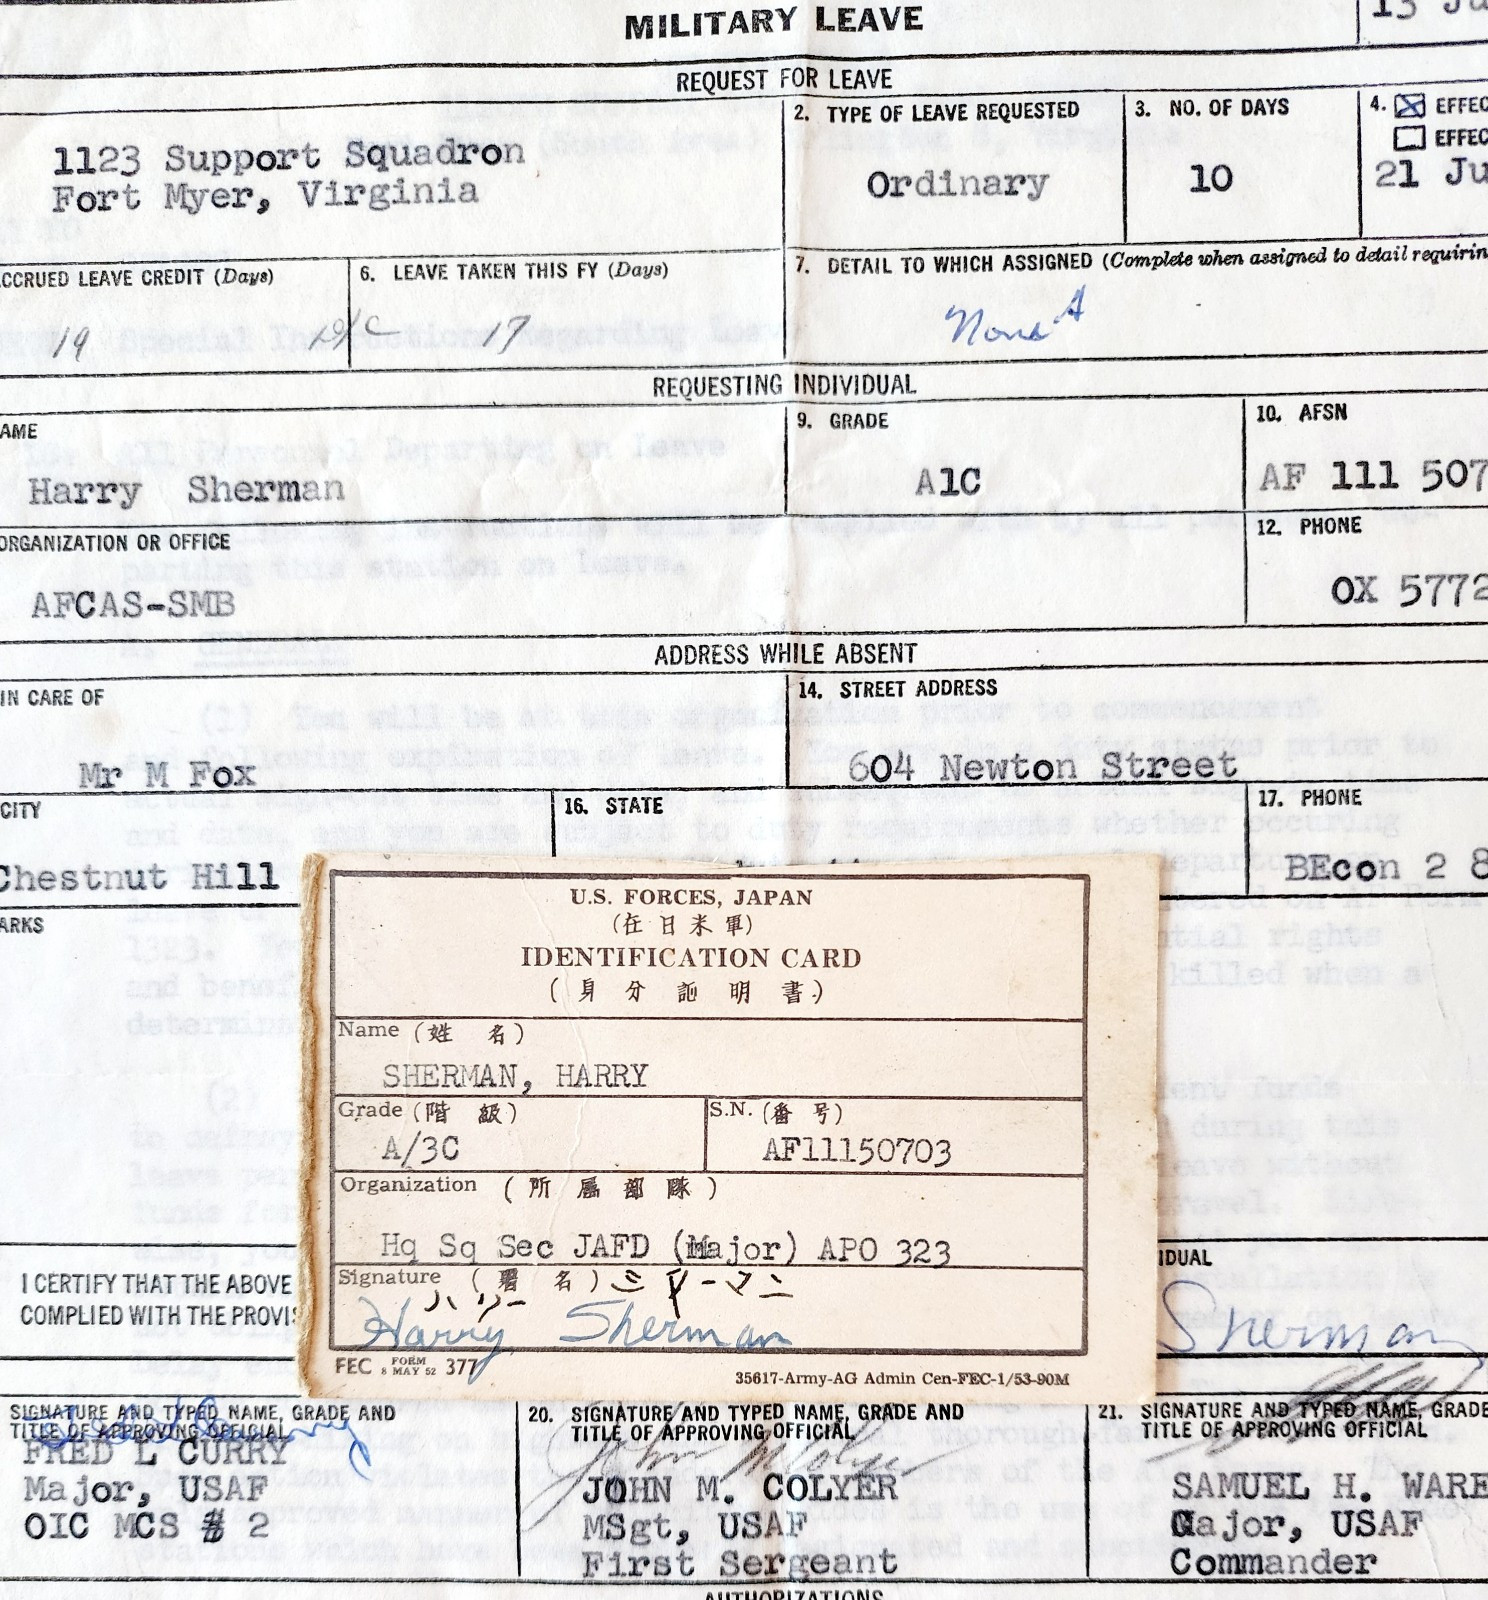 MILITARY LEAVE
13 Ju
REQUEST FOR LEAVE
1123 Support Squadron
Fort Myer, Virginia
2. TYPE OF LEAVE REQUESTED
Ordinary
3. NO. OF DAYS
10
4. ☒ EFFEC
☐ EFFEC
21 Ju
CCRUED LEAVE CREDIT (Days)
19
6. LEAVE TAKEN THIS FY (Days)
17
7. DETAIL TO WHICH ASSIGNED (Complete when assigned to detail requirin
None
REQUESTING INDIVIDUAL
AME
Harry Sherman
9. GRADE
A1C
10. AFSN
AF 111 507
ORGANIZATION OR OFFICE
AFCAS-SMB
12. PHONE
OX 5772
ADDRESS WHILE ABSENT
IN CARE OF
Mr M Fox
14. STREET ADDRESS
604 Newton Street
CITY
Chestnut Hill
16. STATE
17. PHONE
BEcon 2 8
ARKS
U.S. FORCES, JAPAN
(在日米軍)
IDENTIFICATION CARD
(身分証明書)
Name (姓名)
SHERMAN, HARRY
Grade (階級)
A/3C
S.N. (番号)
AF11150703
Organization (所属部隊)
Hq Sq Sec JAFD (Major) APO 323
Signature (署名) シャーマン
ハリー
Harry Sherman
FEC FORM 8 MAY 52 377
35617-Army-AG Admin Cen-FEC-1/53-90M
I CERTIFY THAT THE ABOVE
COMPLIED WITH THE PROVIS
IDUAL
Sherman
SIGNATURE AND TYPED NAME, GRADE AND
TITLE OF APPROVING OFFICIAL
FRED L CURRY
Major, USAF
OIC MCS # 2
20. SIGNATURE AND TYPED NAME, GRADE AND
TITLE OF APPROVING OFFICIAL
JOHN M. COLYER
MSgt, USAF
First Sergeant
21. SIGNATURE AND TYPED NAME, GRADE
TITLE OF APPROVING OFFICIAL
SAMUEL H. WARE
Major, USAF
Commander
AUTHORIZATIONS